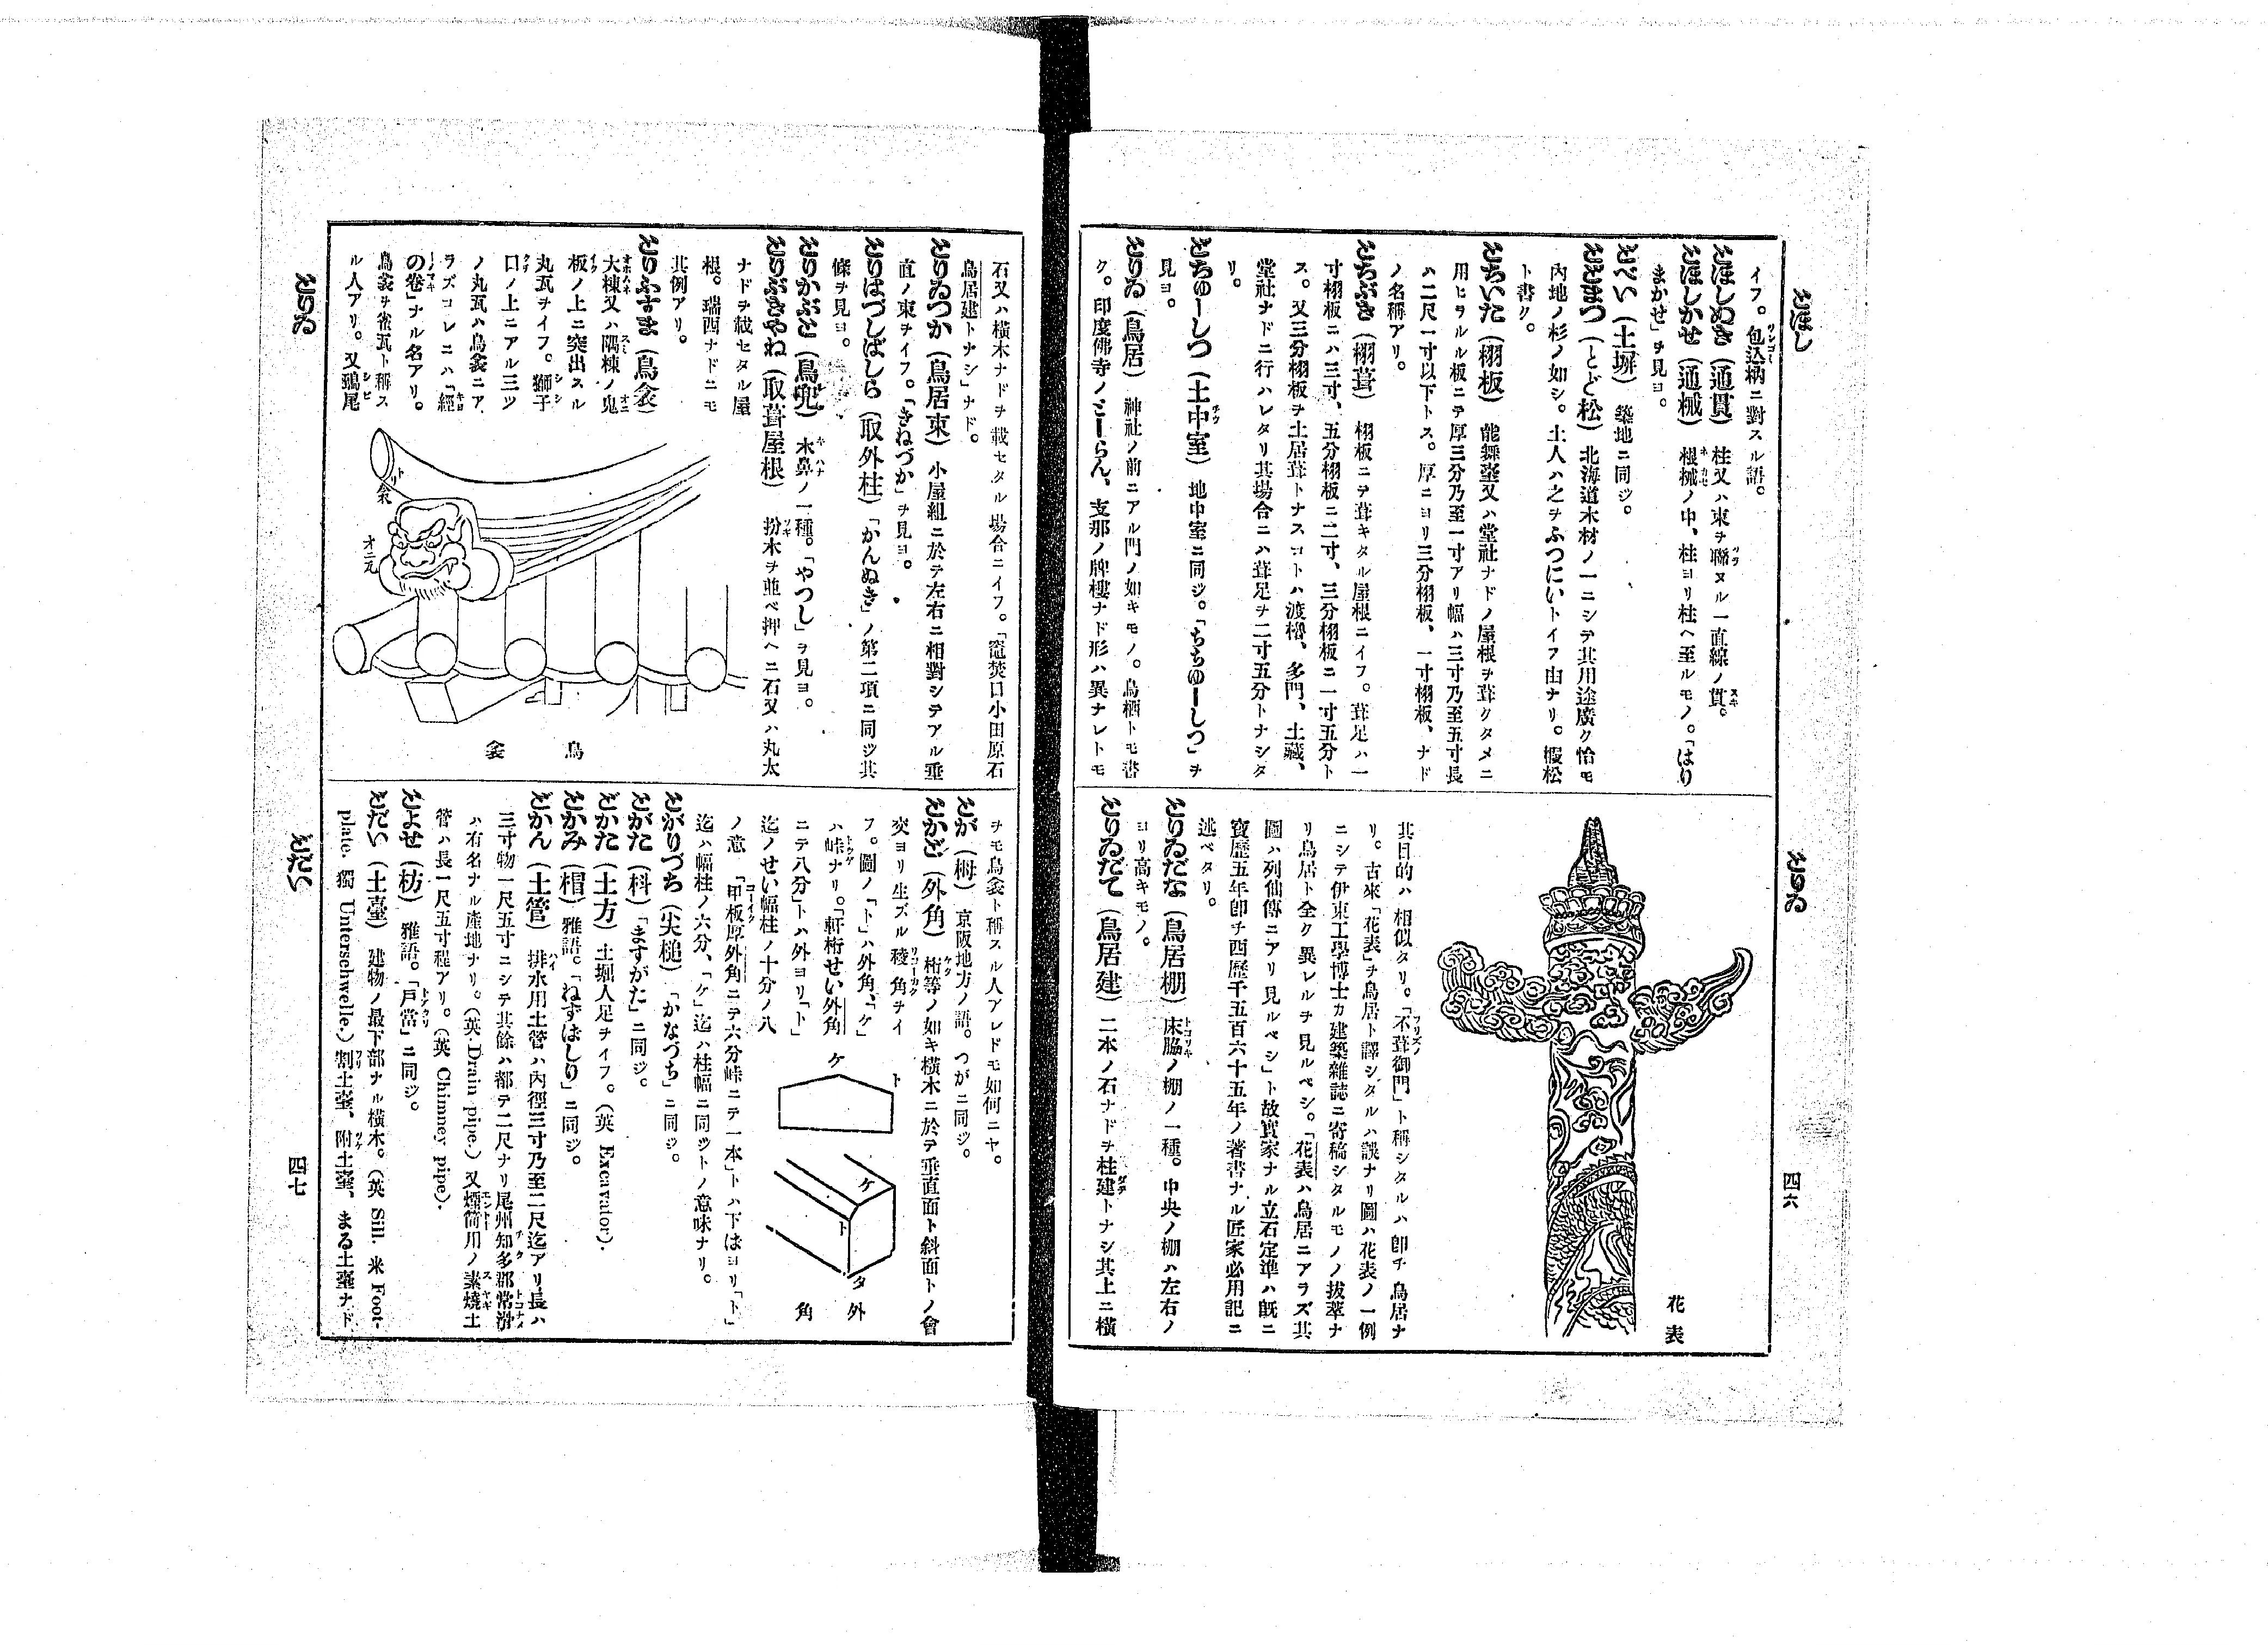 とほし
イフ。包込枘ニ對スル語。
とほしぬき（通貫） 柱又ハ束ヲ聯ヌル一直線ノ貫。
とほしかせ（通械） 根械ノ中、柱ヨリ柱ヘ至ルモノ。「はり
まかせ」ヲ見ヨ。
とべい（土塀） 築地ニ同ジ。
とどまつ（とど松） 北海道木材ノ一ニシテ其用途廣ク恰モ
內地ノ杉ノ如シ。土人ハ之ヲふつにいトイフ由ナリ。椴松
ト書ク。
とちいた（栩板） 能舞臺又ハ堂社ナドノ屋根ヲ葺クタメニ
用ヒラルル板ニテ厚三分乃至一寸アリ幅ハ三寸乃至五寸長
ハ二尺一寸以下トス。厚ニヨリ三分栩板、一寸栩板、ナド
ノ名稱アリ。
とちぶき（栩葺） 栩板ニテ葺キタル屋根ニイフ。葺足ハ一
寸栩板ニハ三寸、五分栩板ニ二寸、三分栩板ニ一寸五分ト
ス。又三分栩板ヲ土居葺トナスコトハ渡櫓、多門、土藏、
堂社ナドニ行ハレタリ其場合ニハ葺足ヲ二寸五分トナシタ
リ。
とちゆーしつ（土中室） 地中室ニ同ジ。「ちちゆーしつ」ヲ
見ヨ。
とりゐ（鳥居） 神社ノ前ニアル門ノ如キモノ。鳥栖トモ書
ク。印度佛寺ノとーらん、支那ノ牌樓ナド形ハ異ナレトモ
とりゐ
四六
花表
其目的ハ相似タリ。「不葺御門」ト稱シタルハ卽チ鳥居ナ
リ。古來「花表」ヲ鳥居ト譯シタルハ誤ナリ圖ハ花表ノ一例
ニシテ伊東工學博士カ建築雜誌ニ寄稿シタルモノノ拔萃ナ
リ鳥居ト全ク異レルヲ見ルベシ。「花表ハ鳥居ニアラズ其
圖ハ列仙傳ニアリ見ルベシ」ト故實家ナル立石定準ハ旣ニ
寶歷五年卽チ西歷千五百六十五年ノ著書ナル匠家必用記ニ
述ベタリ。
とりゐだな（鳥居棚） 床脇ノ棚ノ一種。中央ノ棚ハ左右ノ
ヨリ高キモノ。
とりゐだて（鳥居建） 二本ノ石ナドヲ柱建トナシ其上ニ橫
石又ハ橫木ナドヲ載セタル場合ニイフ。「竈焚口小田原石
鳥居建トナシ」ナド。
とりゐつか（鳥居束） 小屋組ニ於テ左右ニ相對シテアル垂
直ノ束ヲイフ。「きねづか」ヲ見ヨ。
とりはづしばしら（取外柱） 「かんぬき」ノ第二項ニ同ジ其
條ヲ見ヨ。
とりかぶと（鳥兜） 木鼻ノ一種。「やつし」ヲ見ヨ。
とりぶきやね（取葺屋根） 扮木ヲ並ベ押ヘニ石又ハ丸太
ナドヲ載セタル屋
根。瑞西ナドニモ
其例アリ。
とりふすま（鳥衾）
大棟又ハ隅棟ノ鬼
板ノ上ニ突出スル
丸瓦ヲイフ。獅子
口ノ上ニアル三ツ
ノ丸瓦ハ鳥衾ニア
ラズコレニハ「經
の卷」ナル名アリ。
鳥衾ヲ雀瓦ト稱ス
ル人アリ。又鵄尾
トリ衾
オニ瓦
鳥衾
とりゐ
ヲモ鳥衾ト稱スル人アレドモ如何ニヤ。
とが（栂） 京阪地方ノ語。つがニ同ジ。
とかど（外角） 桁等ノ如キ橫木ニ於テ垂直面ト斜面トノ會
突ヨリ生ズル稜角ヲイ
フ。圖ノ「ト」ハ外角、「ケ」
ハ峠ナリ。「軒桁せい外角
ニテ八分」トハ外ヨリ「ト」
迄ノせい幅柱ノ十分ノ八
ノ意 「甲板厚外角ニテ六分峠ニテ一本」トハ下はヨリ「ト」
迄ハ幅柱ノ六分、「ケ」迄ハ柱幅ニ同ジトノ意味ナリ。
ケ
ト
ケ
ト
タ
外角
とがりづち（尖槌） 「かなづち」ニ同ジ。
とがた（枓） 「ますがた」ニ同ジ。
どかた（土方） 土堀人足ヲイフ。（英 Excavator）.
とかみ（楣） 雅語。「ねずはしり」ニ同ジ。
どかん（土管） 排水用土管ハ內徑三寸乃至二尺迄アリ長ハ
三寸物一尺五寸ニシテ其餘ハ都テ二尺ナリ尾州知多郡常滑
ハ有名ナル產地ナリ。（英.Drain pipe.）又煙筒用ノ素燒土
管ハ長一尺五寸程アリ。（英 Chimney pipe）.
とよせ（枋） 雅語。「戶當」ニ同ジ。
どだい（土臺） 建物ノ最下部ナル橫木。（英 Sill. 米 Foot-
plate. 獨 Unterschwelle.）割土臺、附土臺、まる土臺ナド
とだい
四七